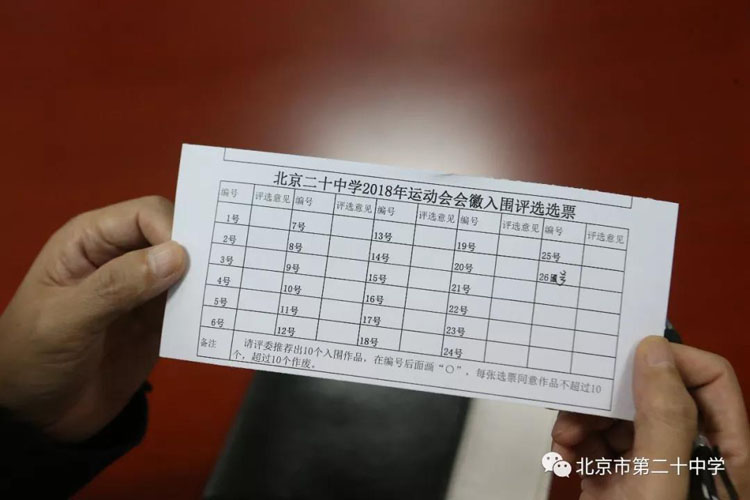 北京二十中学2018年运动会会徽入围评选选票
编号 评选意见 编号 评选意见 编号 评选意见 编号 评选意见 编号 评选意见
1号 7号 13号 19号 25号
2号 8号 14号 20号 26号
3号 9号 15号 21号
4号 10号 16号 22号
5号 11号 17号 23号
6号 12号 18号 24号
备注 请评委推荐出10个入围作品，在编号后面画“○”，每张选票同意作品不超过10
个，超过10个作废。
北京市第二十中学